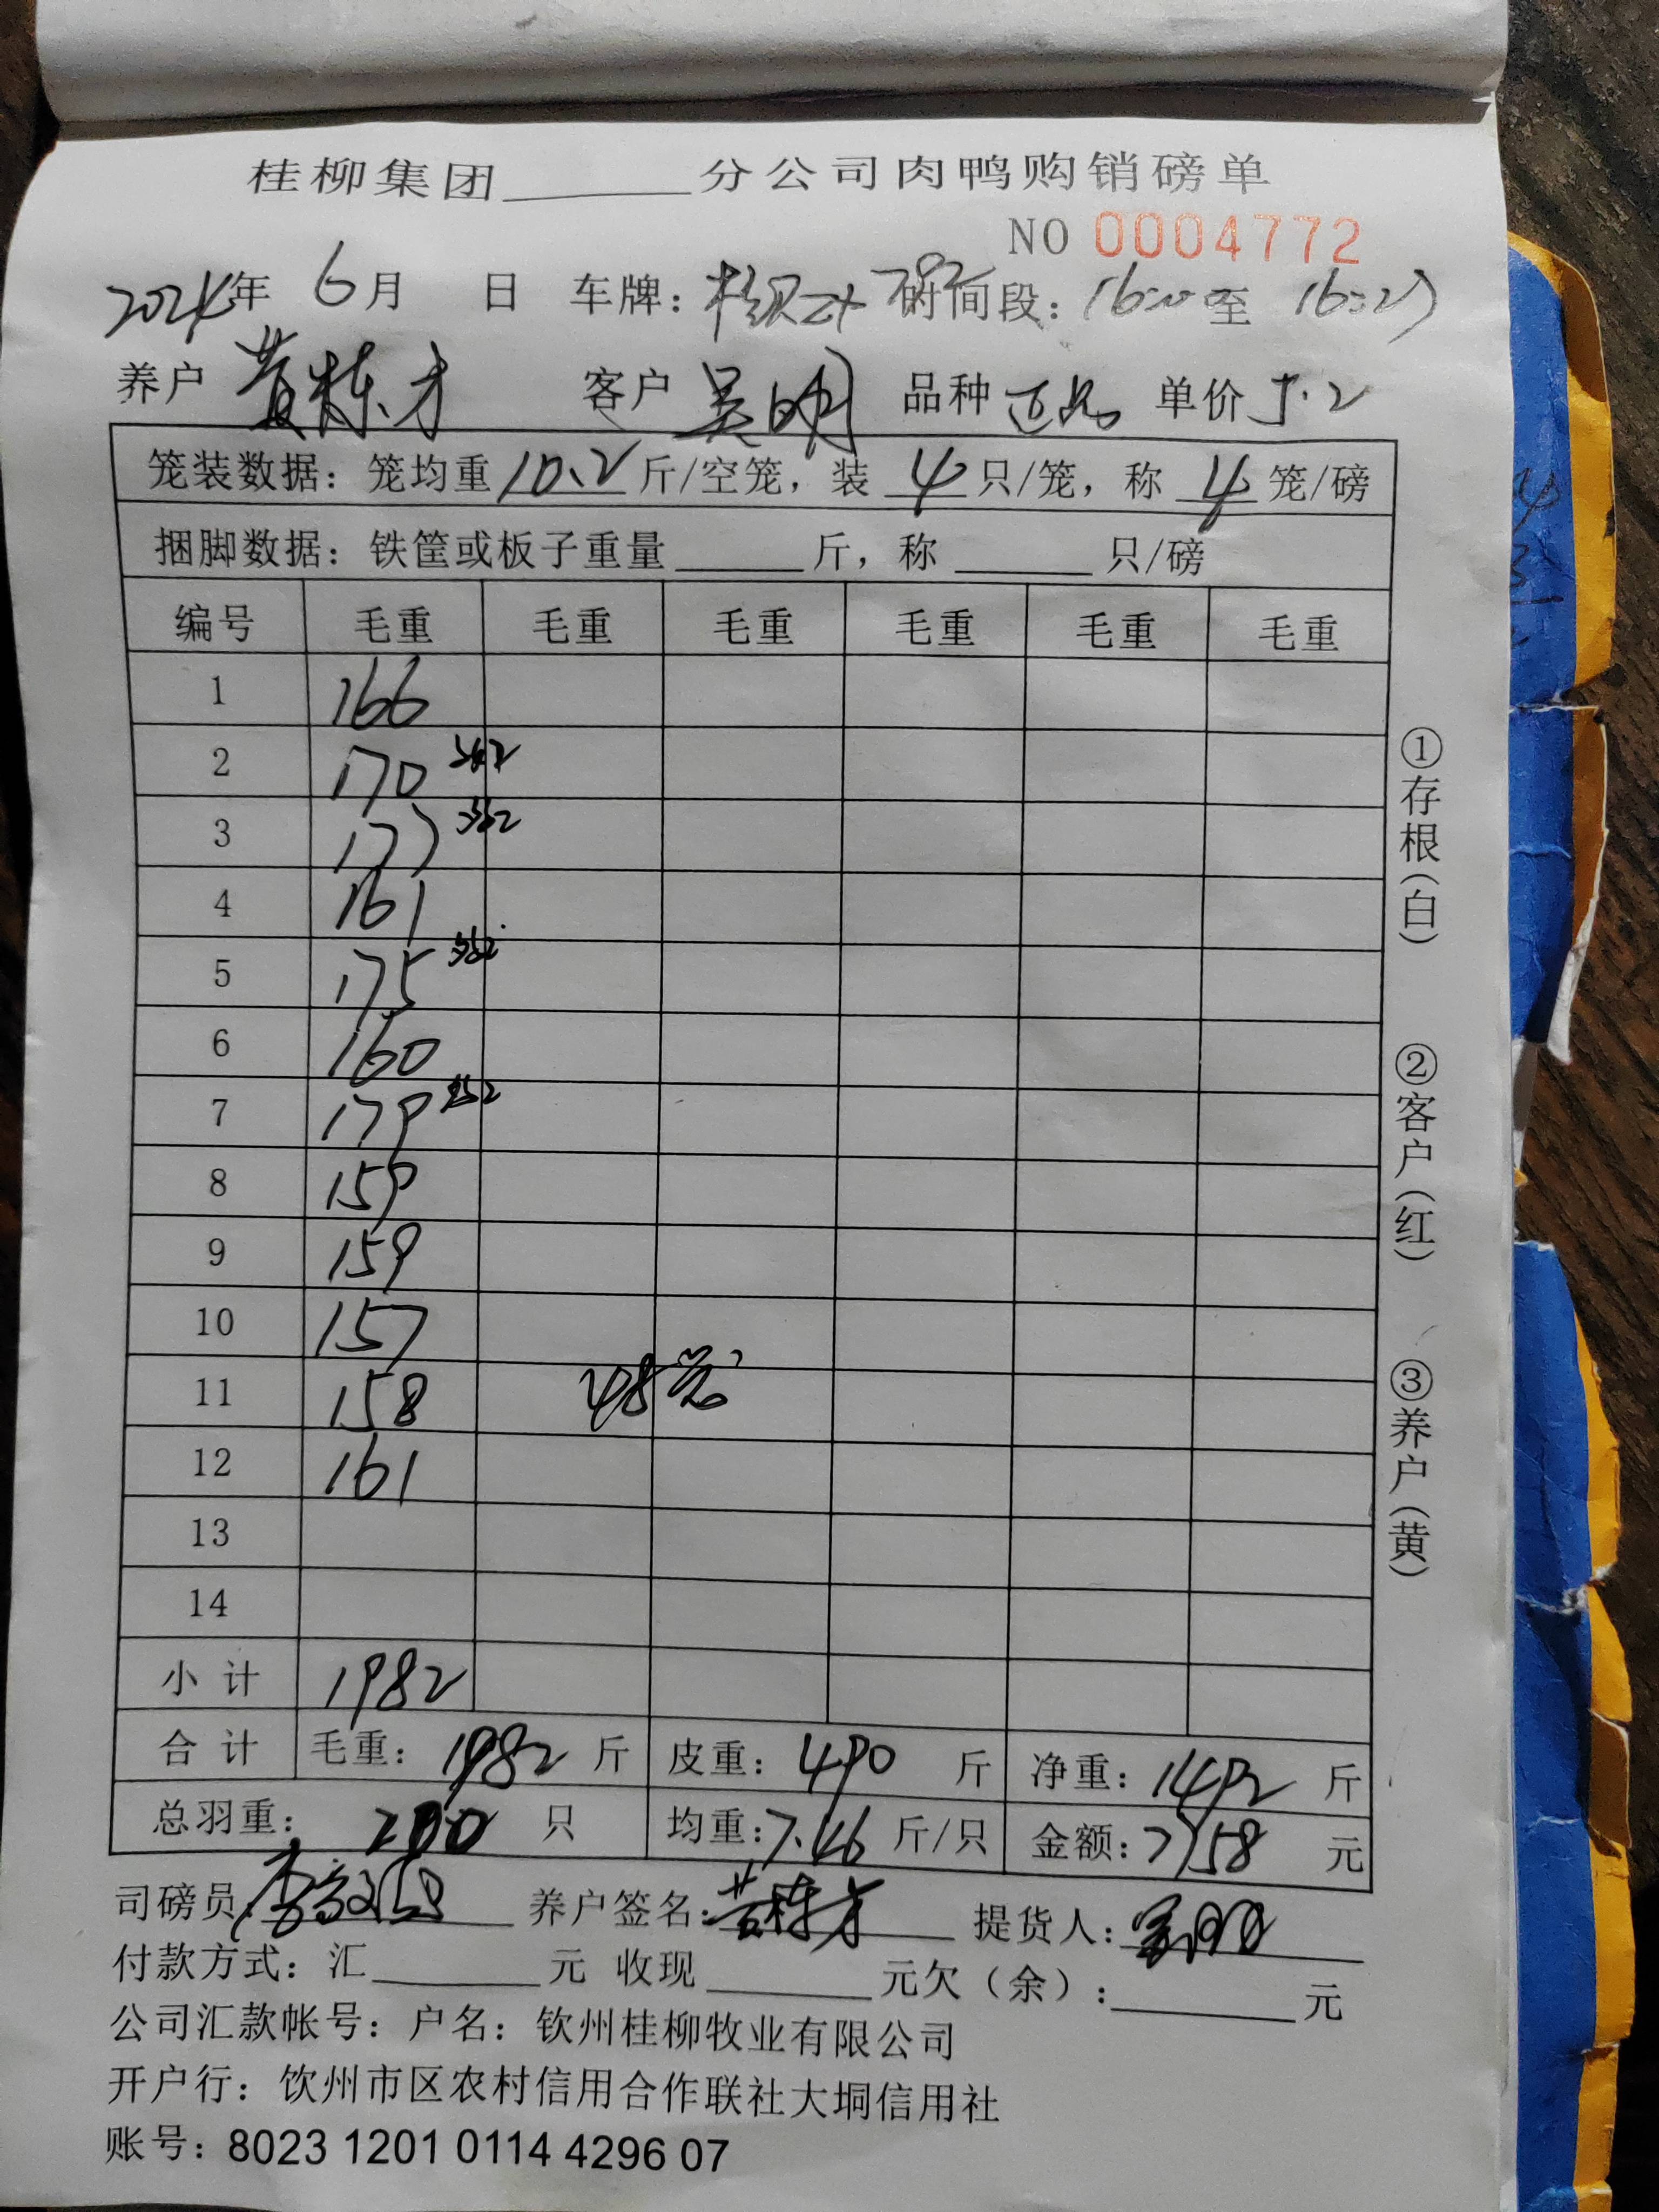 桂柳集团______分公司肉鸭购销磅单
NO 0004772
2024年 6月 日 车牌: 时间段: 16:00 至 16:27
养户 黄栋才 客户 吴明 品种 正品 单价 5.2
笼装数据: 笼均重 10.2 斤/空笼, 装 4 只/笼, 称 4 笼/磅
捆脚数据: 铁筐或板子重量______斤, 称______只/磅
编号 毛重 毛重 毛重 毛重 毛重 毛重
1 166
2 170
3 177 5笼2
4 161
5 175
6 160
7 179
8 159
9 159
10 157
11 158 48笼
12 161
13
14
小计 1982
合计 毛重: 1982 斤 皮重: 490 斤 净重: 1492 斤
总羽重: 200 只 均重: 7.46 斤/只 金额: 7758 元
司磅员: 养户签名: 黄栋才 提货人: 吴明
付款方式: 汇______元 收现______元欠(余):______元
公司汇款帐号: 户名: 钦州桂柳牧业有限公司
开户行: 钦州市区农村信用合作联社大垌信用社
账号: 8023 1201 0114 4296 07
①存根(白)
②客户(红)
③养户(黄)